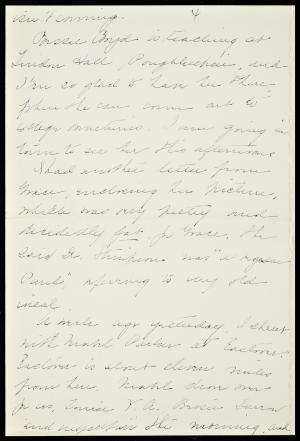 isn't coming. 4
Bessie Boyd is teaching at
Lyndon Hall, Poughkeepsie, and
I'm so glad to have her there
where she can come out to
college sometimes. I am going in
town to see her this afternoon.
I had another letter from
Grace, enclosing her picture,
which was very pretty and
decidedly fat for Grace. She
said Dr. was "a
Paul", referring to my old
ideal.
A week ago yesterday, I
with Mabel Parker at
is about eleven miles
from here. Mabel drove over
for us, Louise
and myself in the morning, and